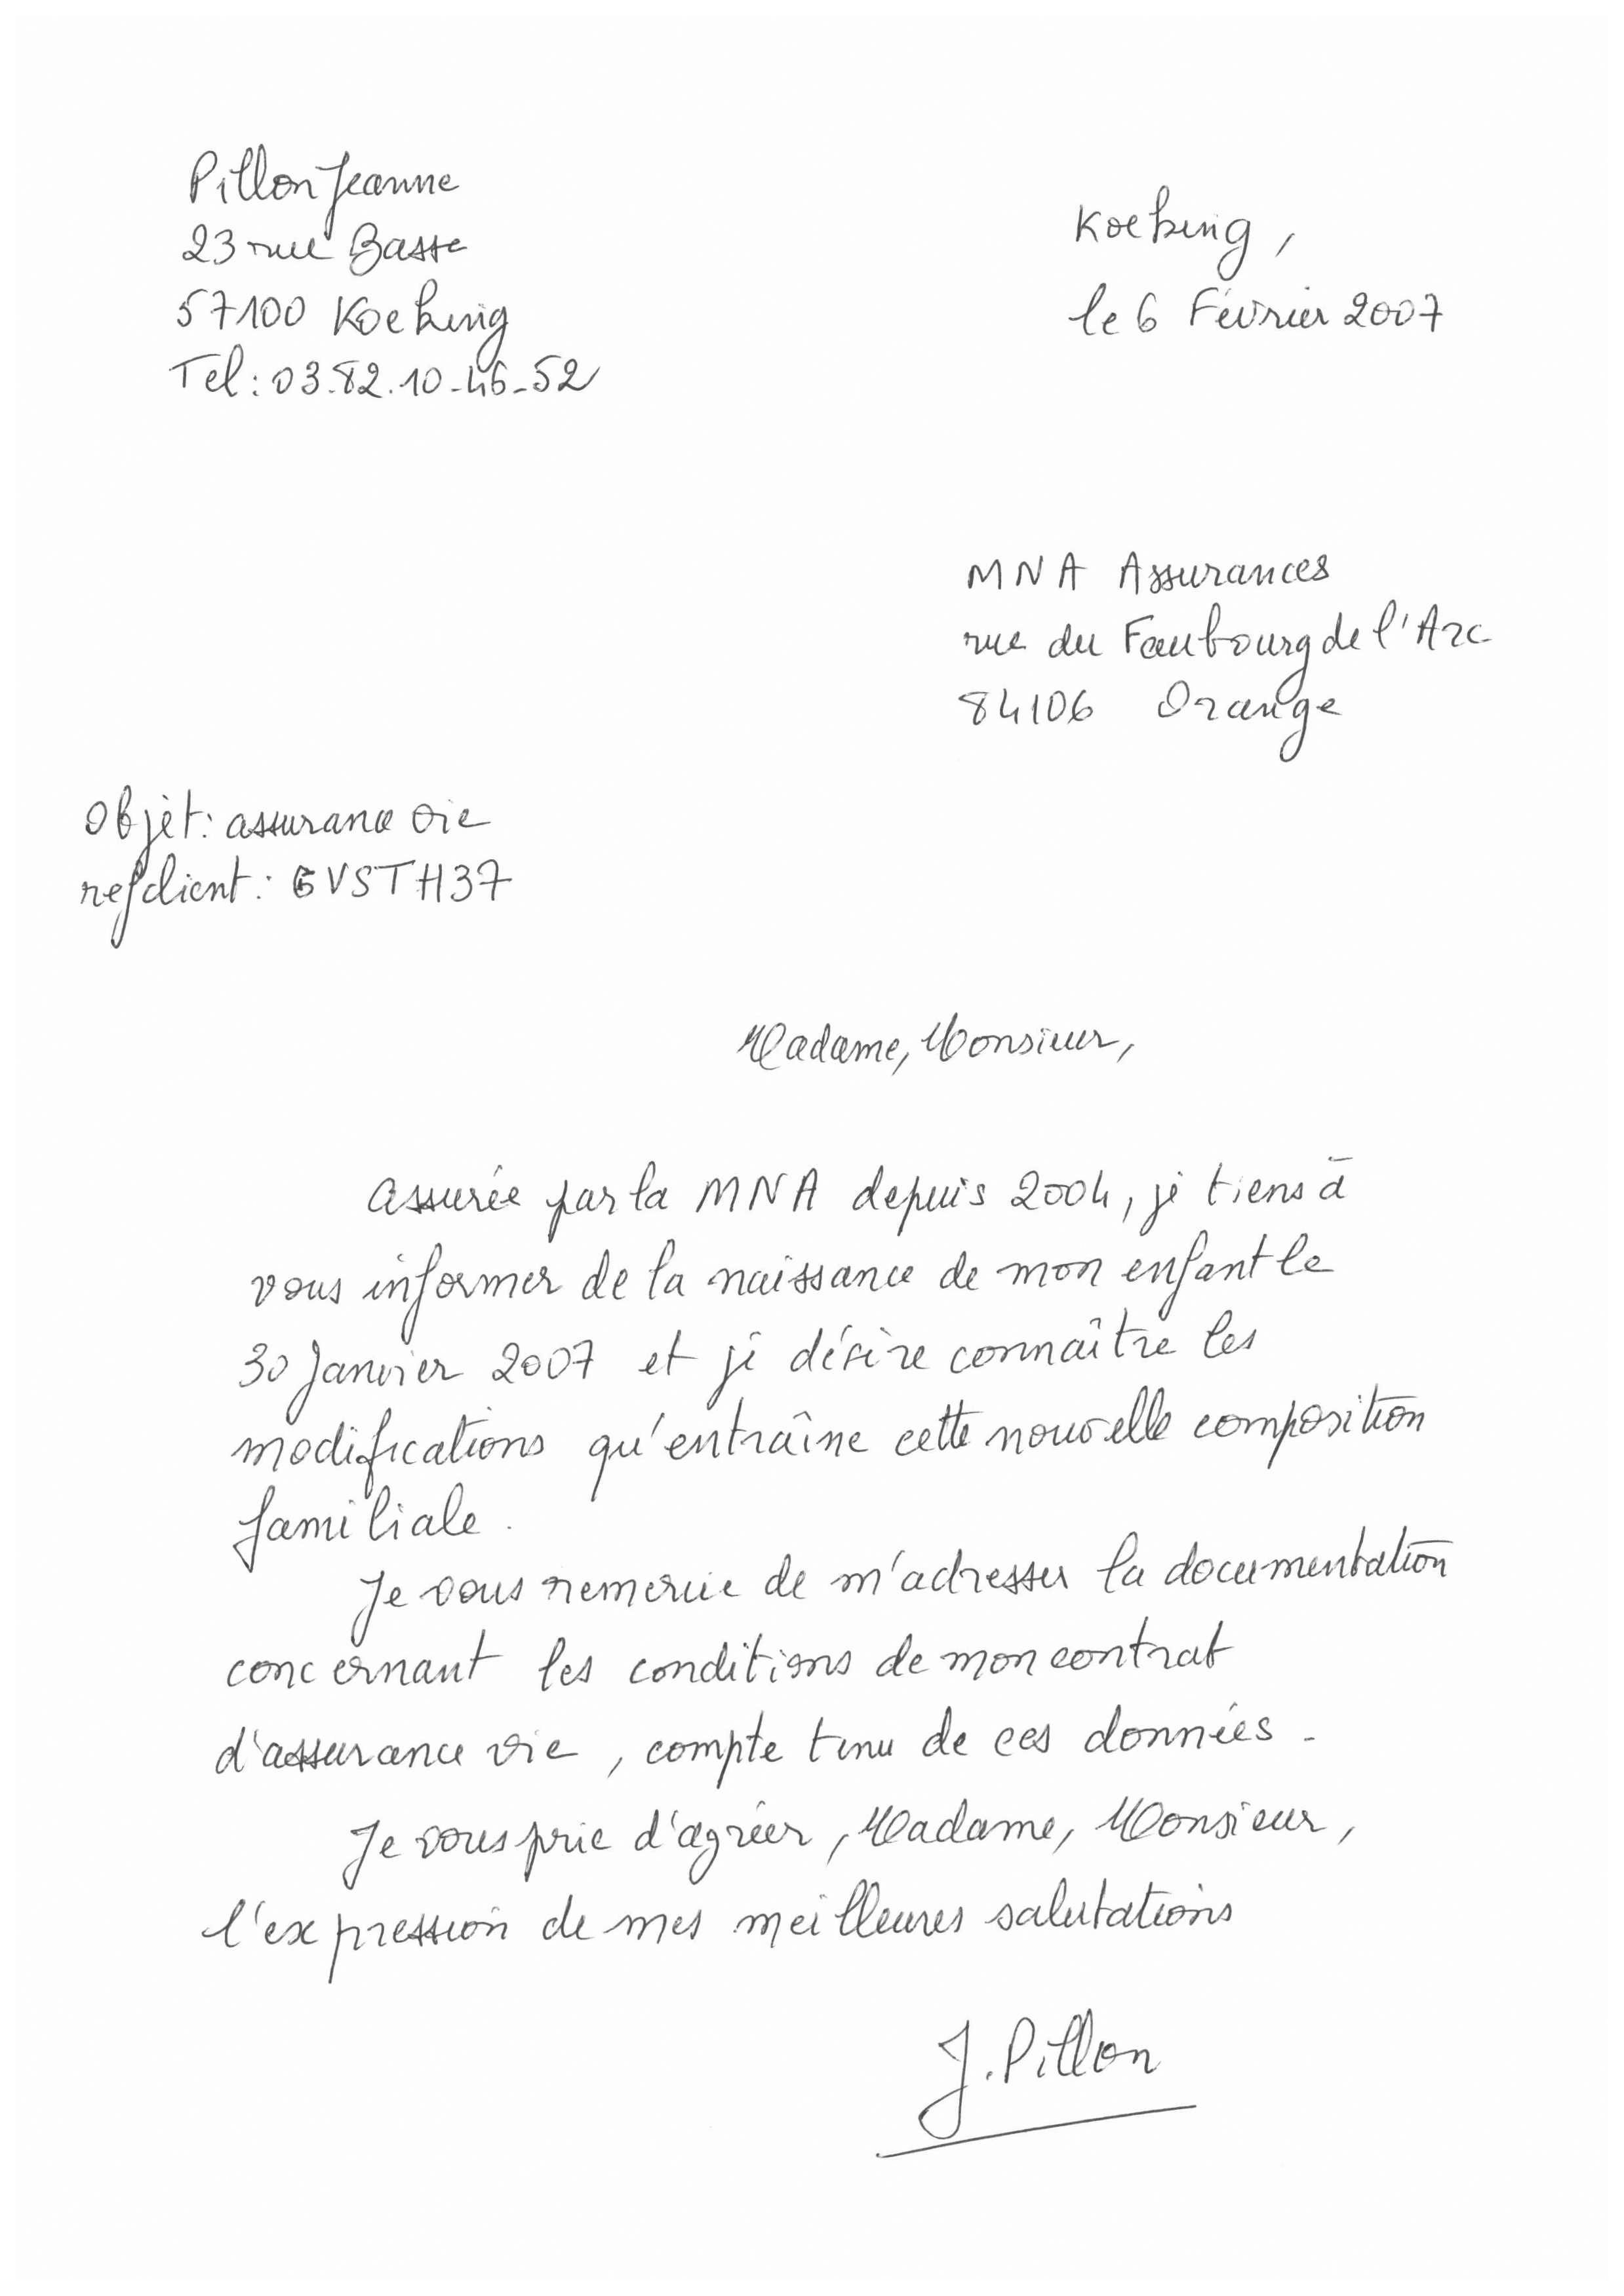 Pillon Jeanne
23 rue Basse
57100 Koeking
Tel : 03.82.10.46.52
Koeking,
le 6 Février 2007
MNA Assurances
rue du Faubourg de l'Arc
84106 Orange
Objet : assurance vie
ref client : GVSTH37
Madame, Monsieur,
Assurée par la MNA depuis 2004, je tiens à
vous informer de la naissance de mon enfant le
30 Janvier 2007 et je désire connaître les
modifications qu'entraîne cette nouvelle composition
familiale.
Je vous remercie de m'adresser la documentation
concernant les conditions de mon contrat
d'assurance vie, compte tenu de ces données.
Je vous prie d'agréer, Madame, Monsieur,
l'expression de mes meilleures salutations
J. Pillon